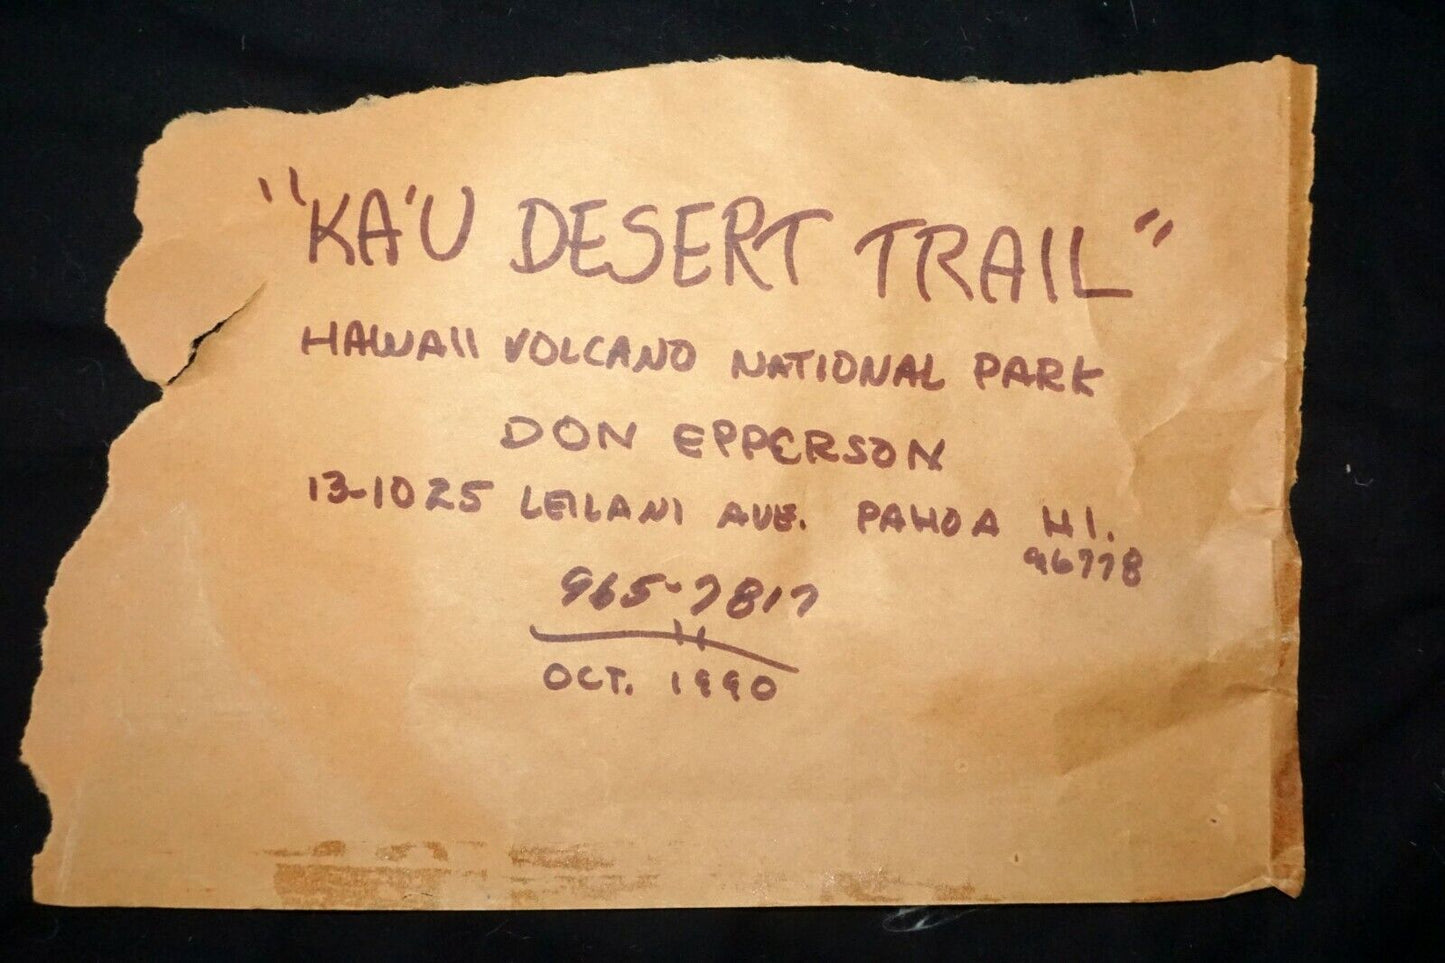 "KA'U DESERT TRAIL"
HAWAII VOLCANO NATIONAL PARK
DON EPPERSON
13-1025 LEILANI AVE. PAHOA HI.
96778
965-7817
OCT. 1990